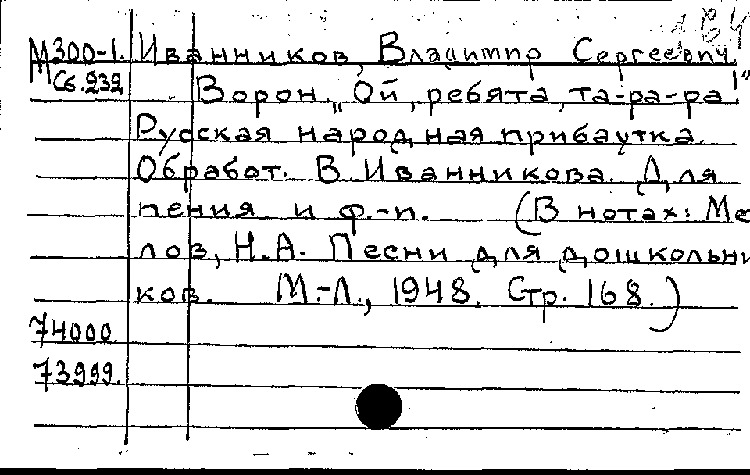 М300-1. Иванников, Владимир Сергеевич.
М Сб.232
Ворон. „Ой, ребята, та-ра-ра!"
Русская народная прибаутка.
Обработ. В Иванникова. Для
пения и ф.-п. (В нотах: Ме
лов, Н.А. Песни для дошкольни
ков. М.-Л., 1948. Стр. 168.)
74000
73999.